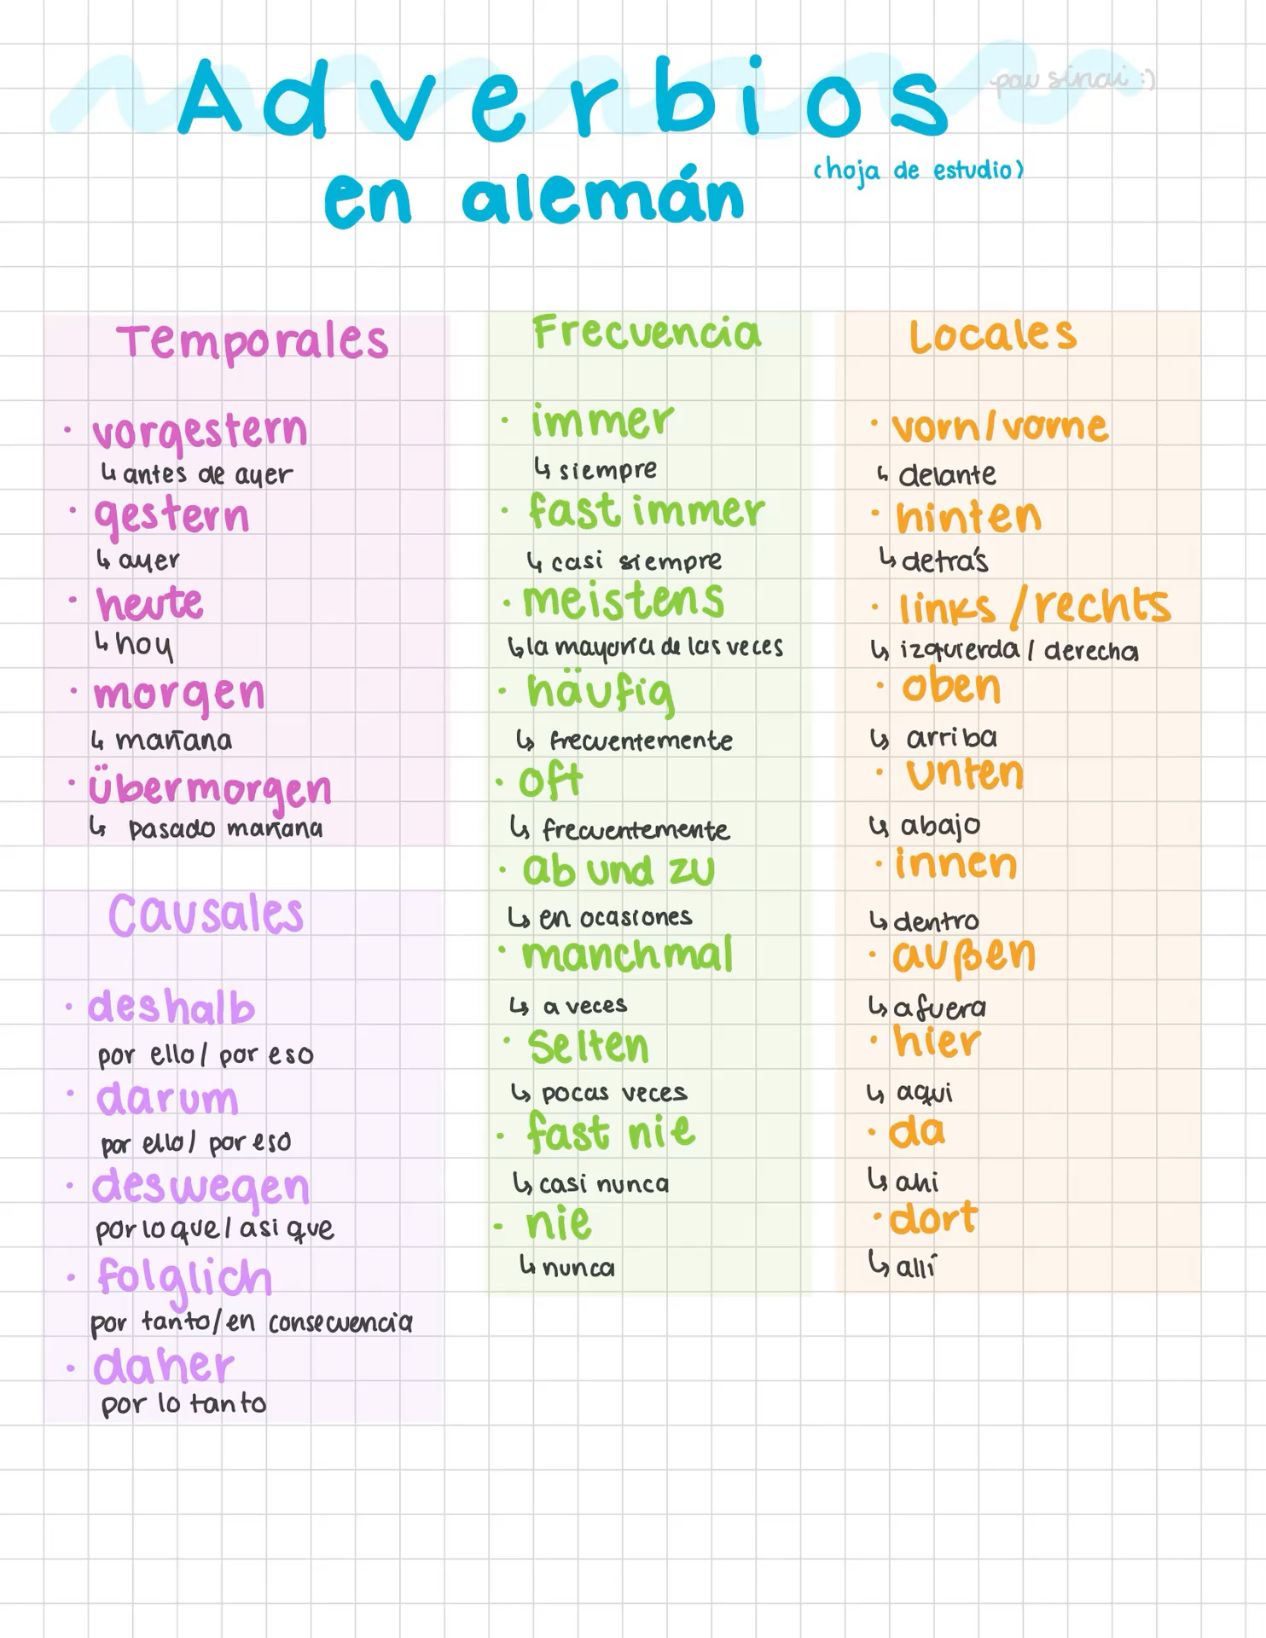 Adverbios
pau sinai :)
en alemán
(hoja de estudio)
Temporales
· vorgestern
↳ antes de ayer
· gestern
↳ ayer
· heute
↳ hoy
· morgen
↳ mañana
· übermorgen
↳ pasado mañana
Causales
· deshalb
por ello / por eso
· darum
por ello / por eso
· deswegen
por lo que / asi que
· folglich
por tanto / en consecuencia
· daher
por lo tanto
Frecuencia
· immer
↳ siempre
· fast immer
↳ casi siempre
· meistens
↳ la mayoría de las veces
· häufig
↳ frecuentemente
· oft
↳ frecuentemente
· ab und zu
↳ en ocasiones
· manchmal
↳ a veces
· selten
↳ pocas veces
· fast nie
↳ casi nunca
· nie
↳ nunca
Locales
· vorn / vorne
↳ delante
· hinten
↳ detrás
· links / rechts
↳ izquierda / derecha
· oben
↳ arriba
· unten
↳ abajo
· innen
↳ dentro
· außen
↳ afuera
· hier
↳ aqui
· da
↳ ahi
· dort
↳ allí